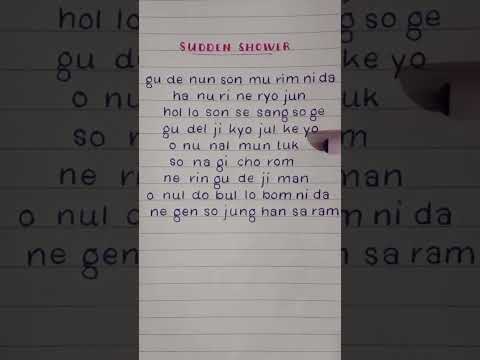 SUDDEN SHOWER
gu de nun son mu rim ni da
ha nu ri ne ryo jun
hol lo son se sang so ge
gu del ji kyo jul ke yo
o nu nal mun tuk
so na gi cho rom
ne rin gu de ji man
o nul do bul lo bom ni da
ne gen so jung han sa ram